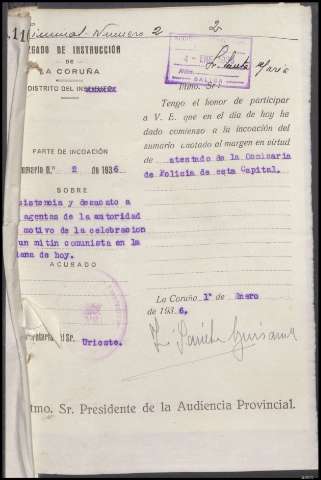 Criminal Número 2
2
ZGADO DE INSTRUCCIÓN
DE
LA CORUÑA
DISTRITO DEL INS
ENE
SALIDA
Iltmo. Sr.:
Tengo el honor de participar
a V. E. que en el día de hoy ha
dado comienzo a la incoación del
sumario anotado al margen en virtud
de atestado de la Comisaria
de Policia de esta Capital.
PARTE DE INCOACIÓN
umario n.º 2 de 1936
SOBRE
sistencia y desacato a
agentes de la autoridad
motivo de la celebracion
un mitin comunista en la
ñana de hoy.
ACUSADO
La Coruña 1º de Enero
de 1936.
ecretaría del Sr. Urioste.
Iltmo. Sr. Presidente de la Audiencia Provincial.